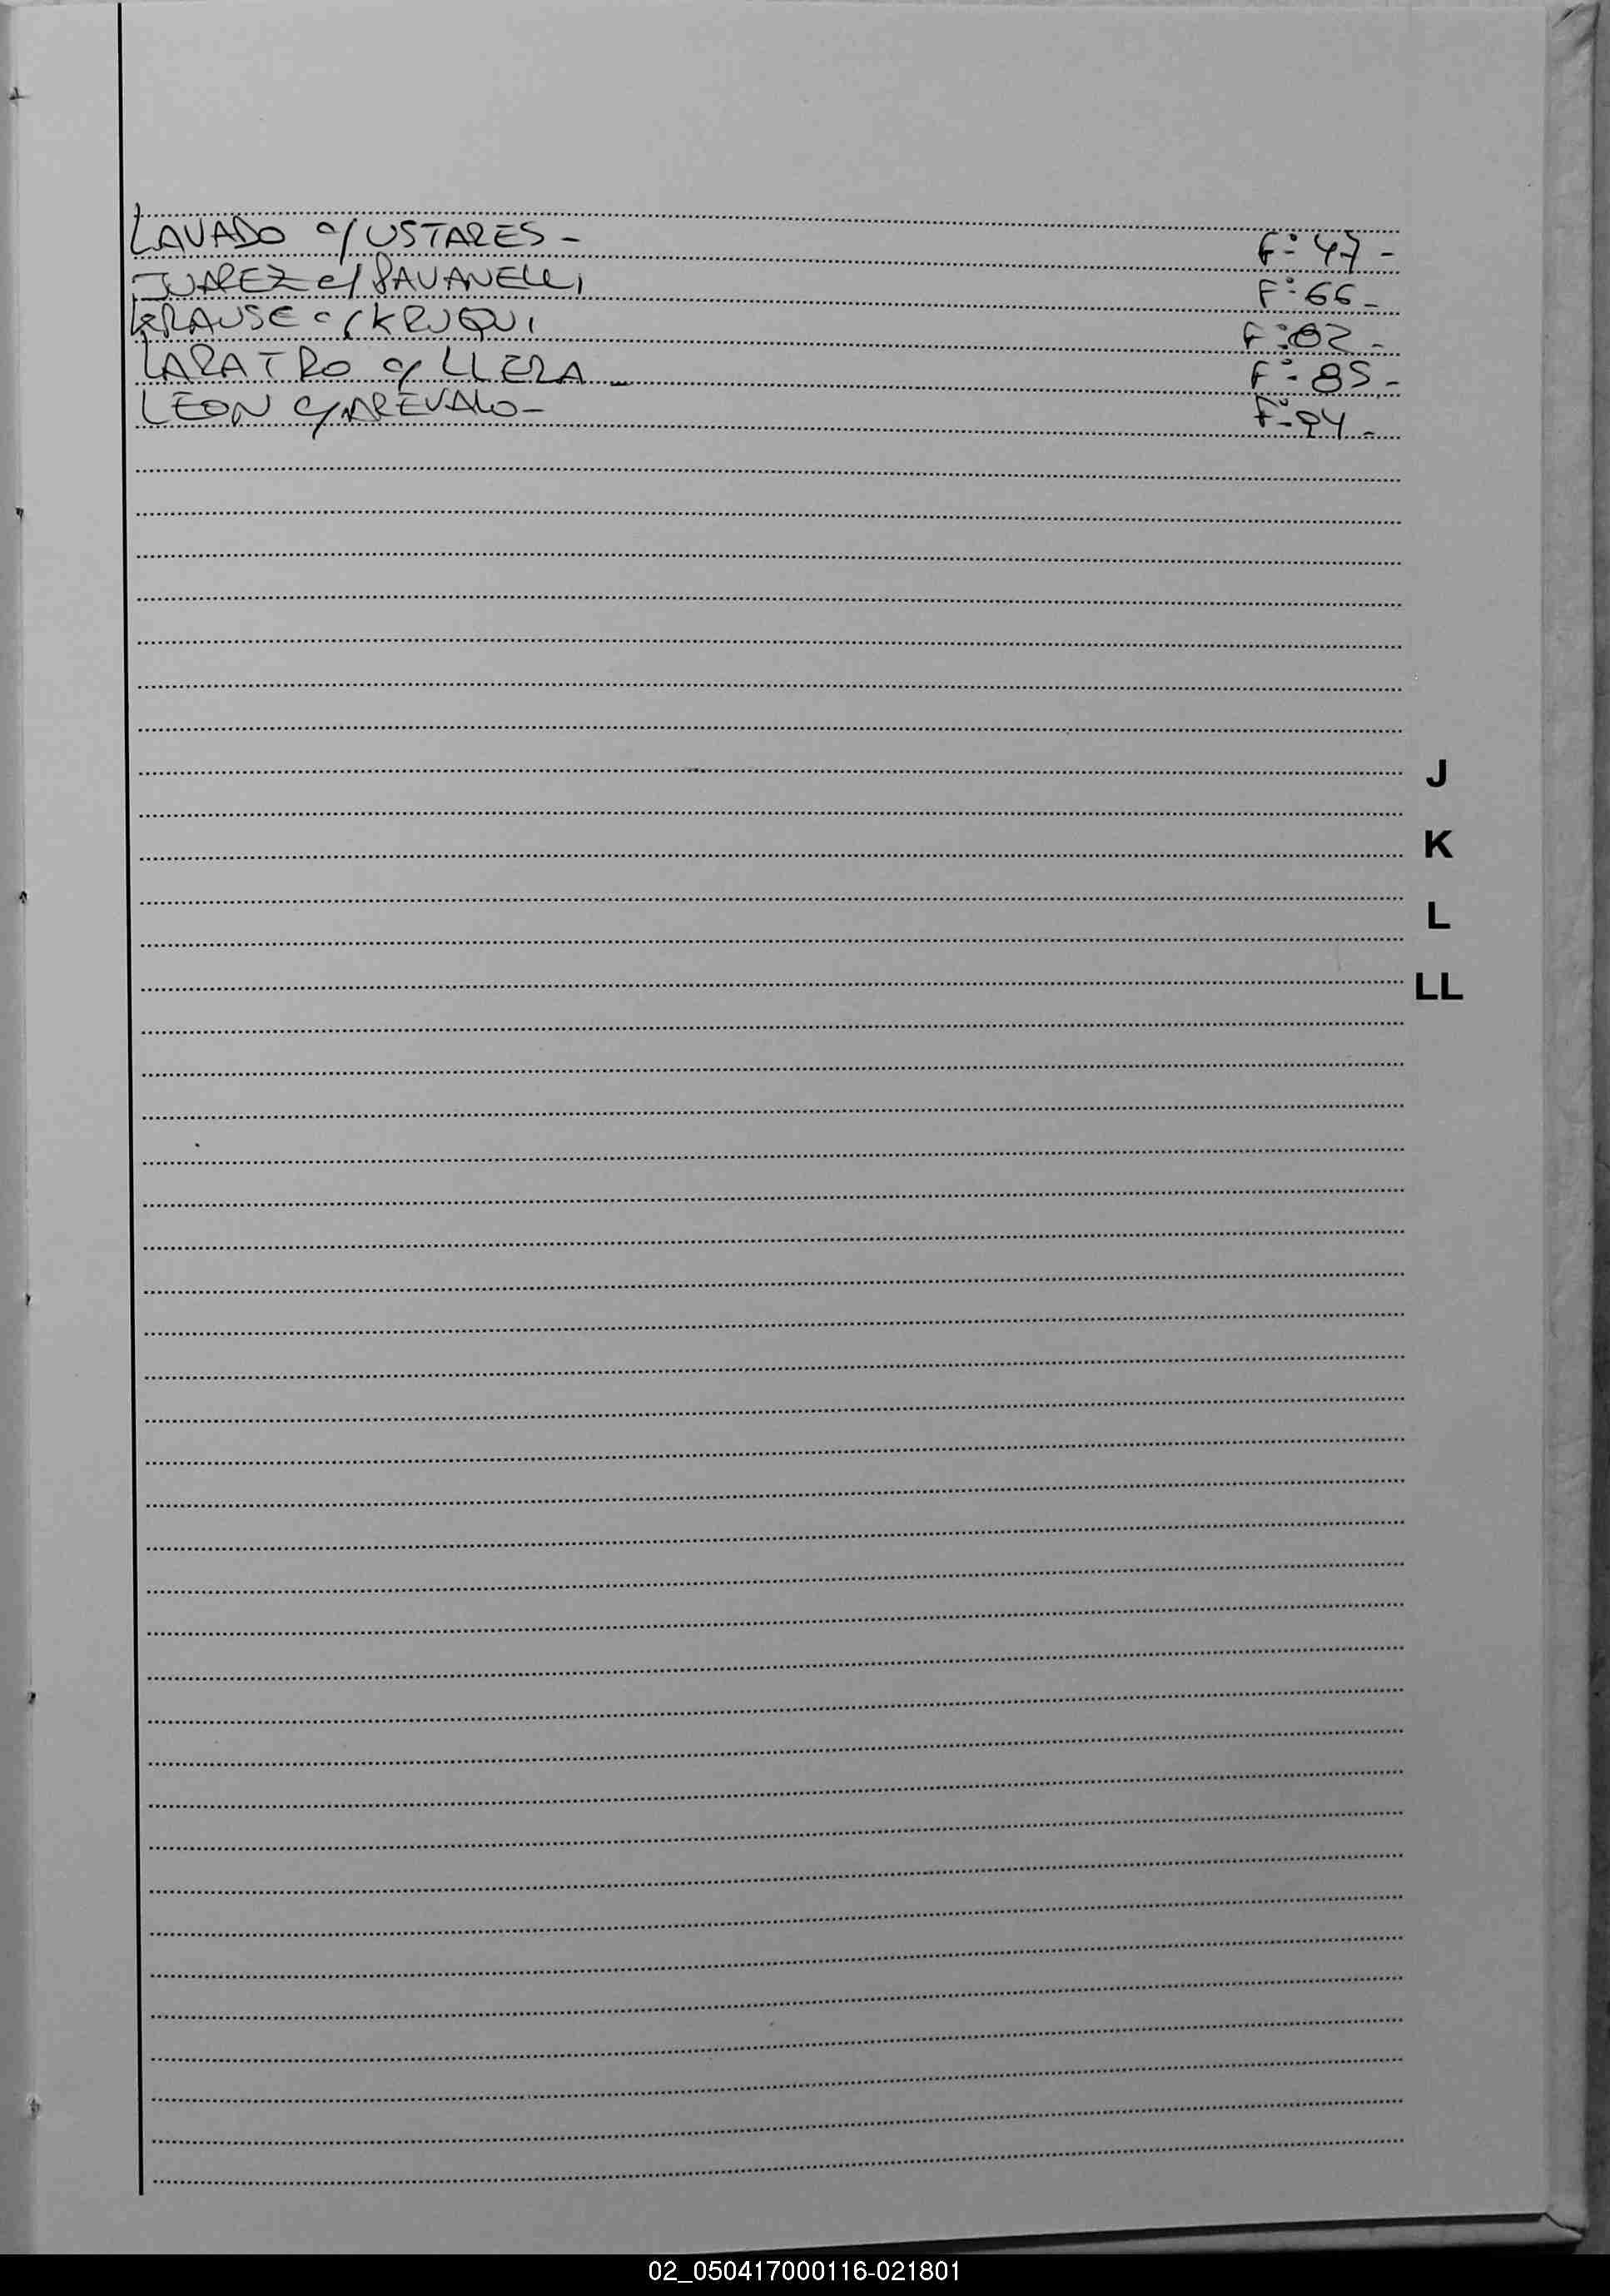 LAVADO c/ USTARES - F: 47 -
JUAREZ c/ PAVANELLI F: 66 -
KRAUSE c/ KRUQUI F: 82 -
LARATRO c/ LLERA - F: 85 -
LEON c/ AREVALO - F: 94 -
J
K
L
LL
02_050417000116-021801